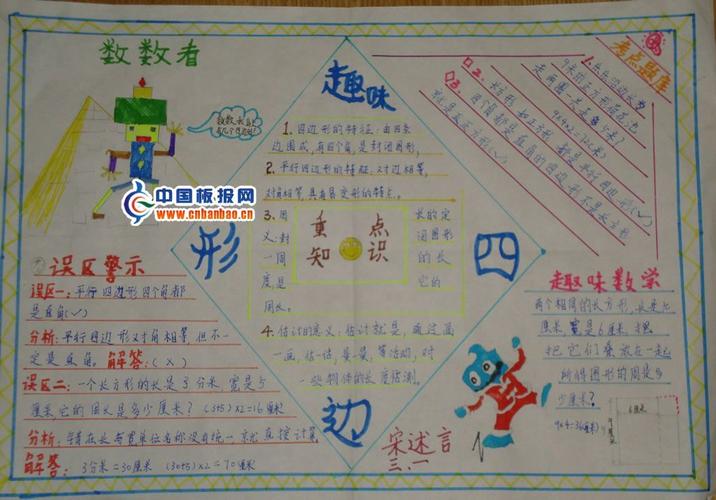 数数看
数数我身上
有几个四边形!
中国板报网
www.cnbanbao.cn
趣味
四
边
形
1. 四边形的特征:由四条
边围成,有四个角,是封闭图形,
2. 平行四边形的特征:对边相等,
对角相等,具有易变形的特点。
3. 周长的定
义:封闭图形
一周的长
度是它的
周长。
重点
知识
4. 估计的意义:估计就是,通过画
一画,估一估,量一量,等活动,对
一些物体的长度估测。
考点题库
9×4×2=72(米)
2. 长方形和正方形都是平行四边形(✓)
误区警示
误区一:平行四边形四个角都
是直角(✓)
分析:平行四边形对角相等,但不一
定是直角。解答:(×)
误区二:一个长方形的长是3分米 宽是5
厘米它的周长是多少厘米?(3+5)×2=16厘米
分析:错在长与宽单位名称没有统一就直接计算
解答:3分米=30厘米 (30+5)×2=70厘米
趣味数学
两个相同的长方形,长是九
厘米 宽是6厘米,把
把它们叠放在一起
所得图形的周长是多
少厘米?
6厘米
9×4=36(厘米)
宋述言
三、一